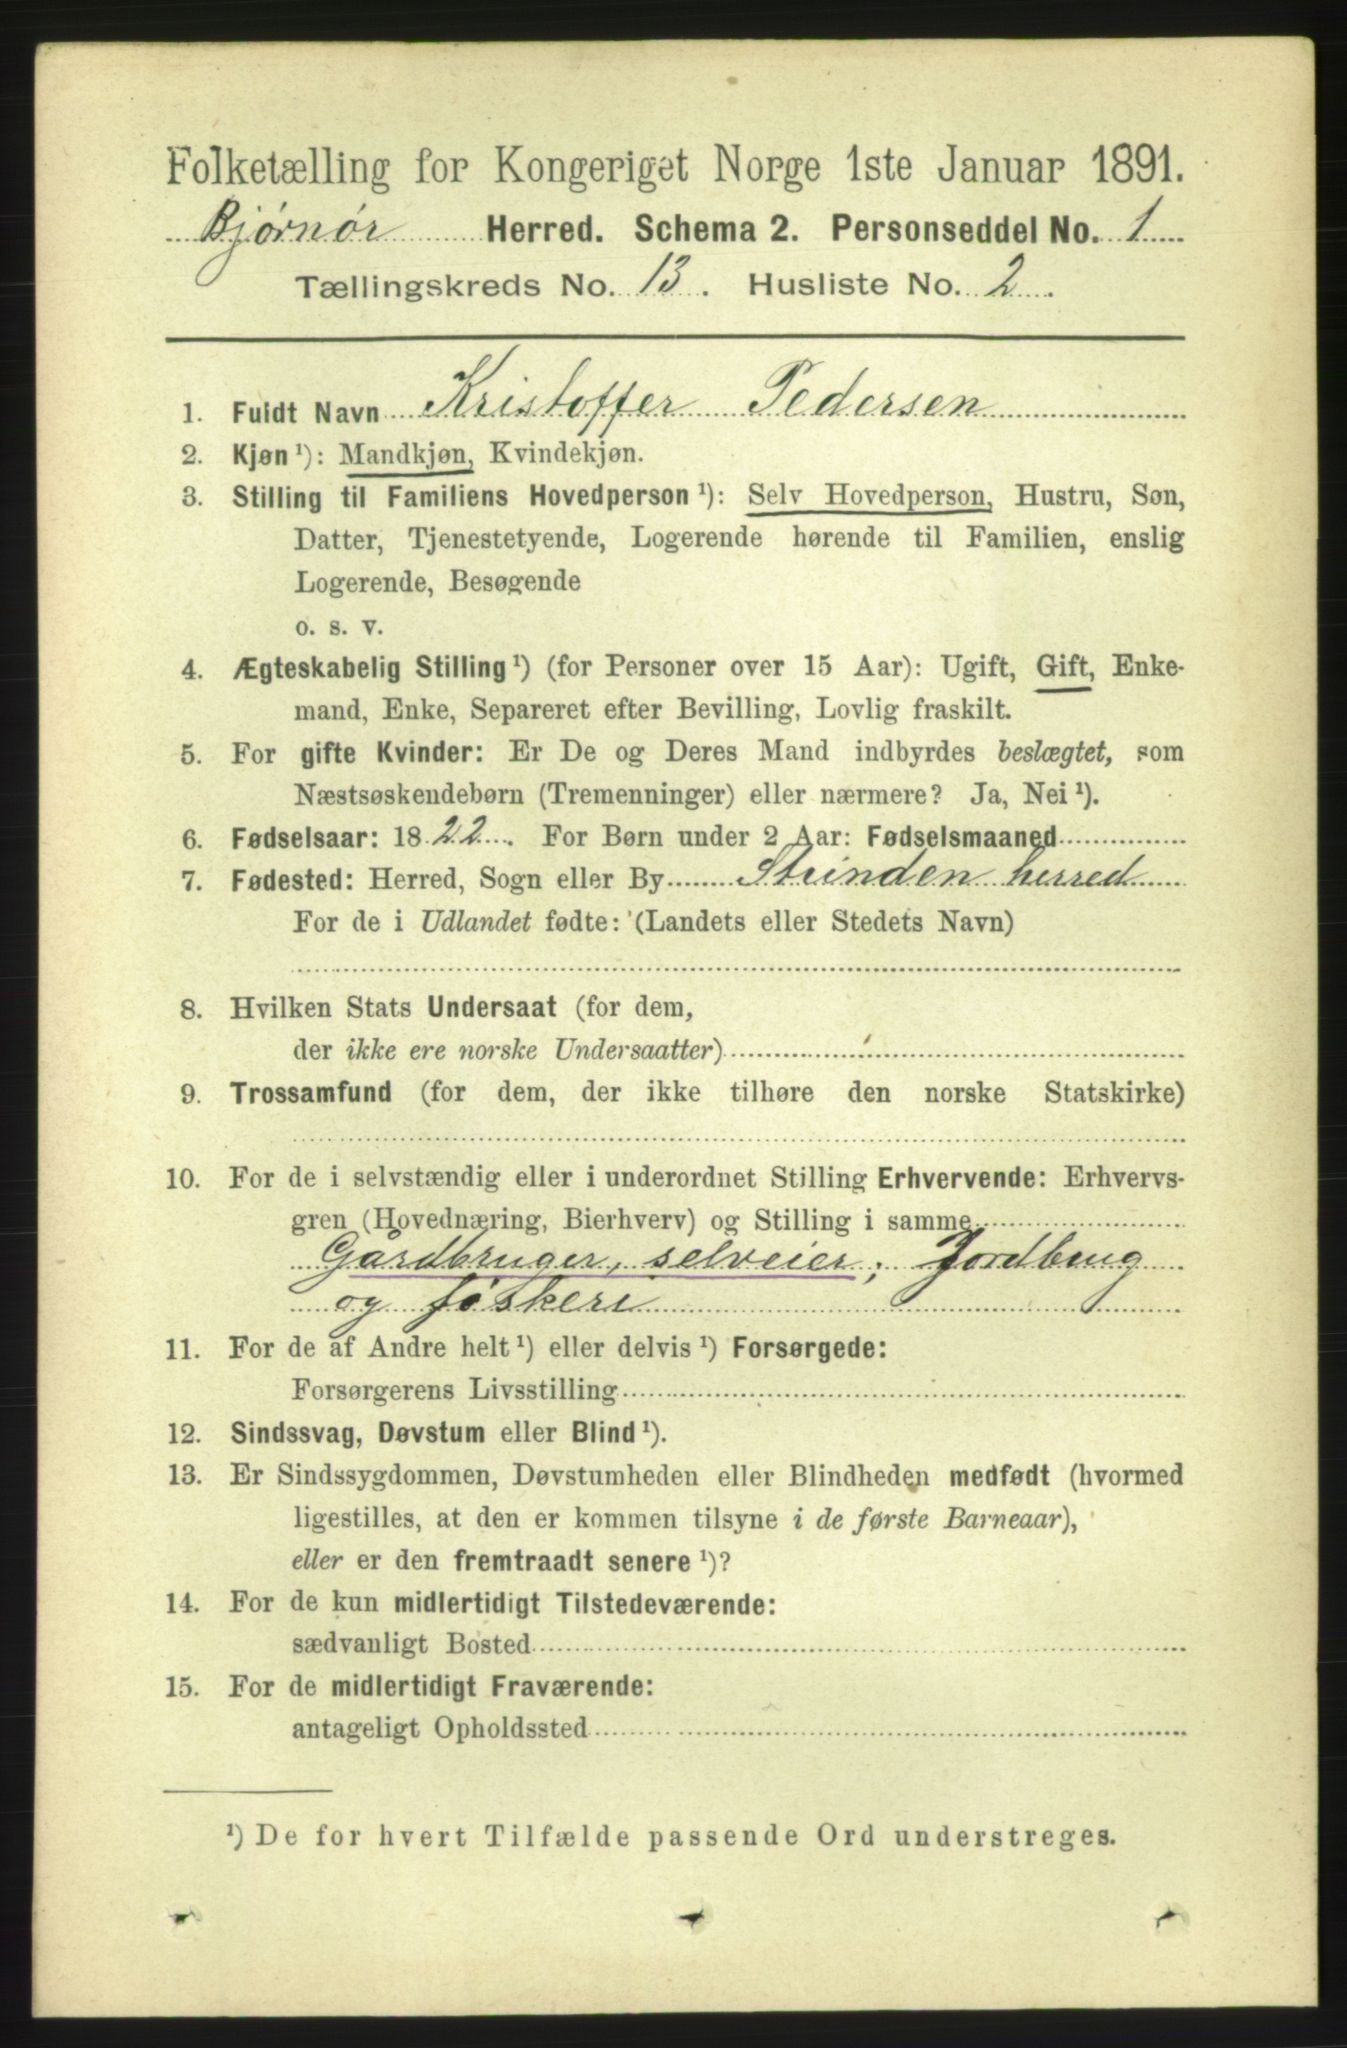 Folketælling for Kongeriget Norge 1ste Januar 1891.
Bjørnør Herred. Schema 2. Personseddel No. 1
Tællingskreds No. 13. Husliste No. 2.
1. Fuldt Navn Kristoffer Pedersen
2. Kjøn ¹): Mandkjøn, Kvindekjøn.
3. Stilling til Familiens Hovedperson ¹): Selv Hovedperson, Hustru, Søn,
Datter, Tjenestetyende, Logerende hørende til Familien, enslig
Logerende, Besøgende
o. s. v.
4. Ægteskabelig Stilling ¹) (for Personer over 15 Aar): Ugift, Gift, Enke-
mand, Enke, Separeret efter Bevilling, Lovlig fraskilt.
5. For gifte Kvinder: Er De og Deres Mand indbyrdes beslægtet, som
Næstsøskendebørn (Tremenninger) eller nærmere? Ja, Nei ¹).
6. Fødselsaar: 1822. For Børn under 2 Aar: Fødselsmaaned
7. Fødested: Herred, Sogn eller By Strinden herred
For de i Udlandet fødte: (Landets eller Stedets Navn)
8. Hvilken Stats Undersaat (for dem,
der ikke ere norske Undersaatter)
9. Trossamfund (for dem, der ikke tilhøre den norske Statskirke)
10. For de i selvstændig eller i underordnet Stilling Erhvervende: Erhvervs-
gren (Hovednæring, Bierhverv) og Stilling i samme
Gårdbruger, selveier; Jordbrug
og fiskeri
11. For de af Andre helt ¹) eller delvis ¹) Forsørgede:
Forsørgerens Livsstilling
12. Sindssvag, Døvstum eller Blind ¹).
13. Er Sindssygdommen, Døvstumheden eller Blindheden medfødt (hvormed
ligestilles, at den er kommen tilsyne i de første Barneaar),
eller er den fremtraadt senere ¹)?
14. For de kun midlertidigt Tilstedeværende:
sædvanligt Bosted
15. For de midlertidigt Fraværende:
antageligt Opholdssted
¹) De for hvert Tilfælde passende Ord understreges.